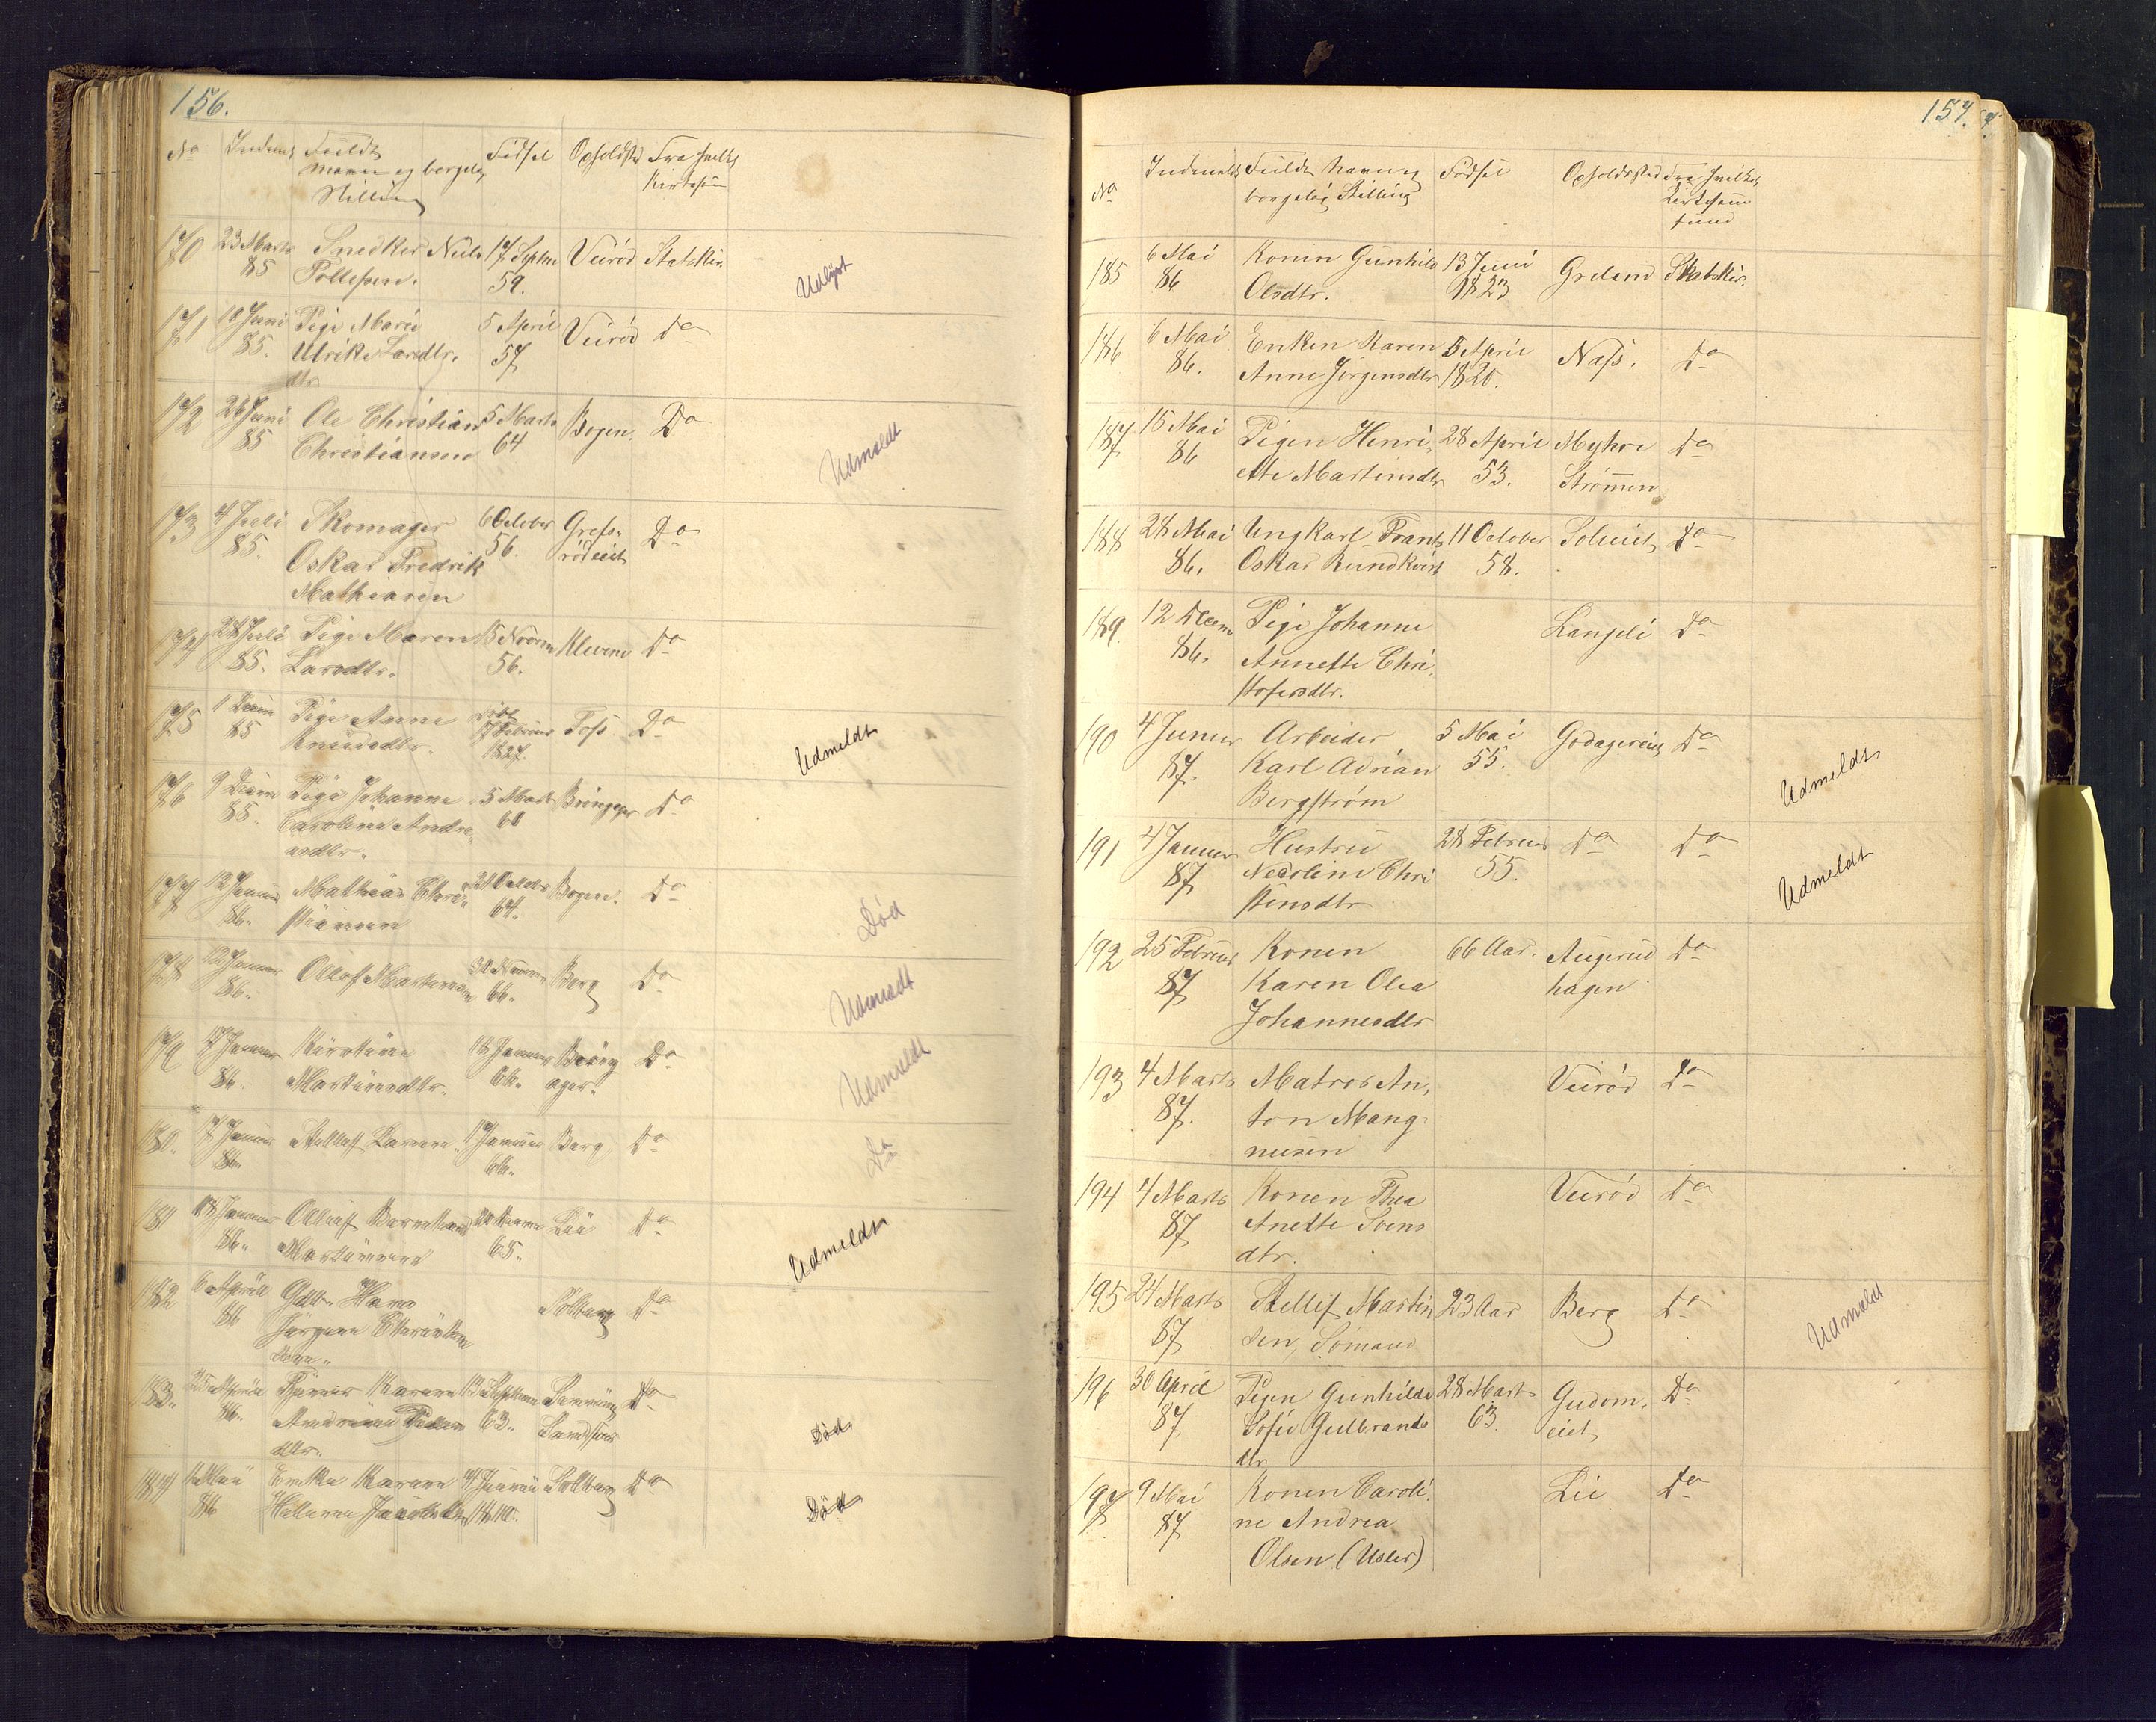 156.
No Indmeldt Fuldt Navn og borgelig Stilling Fødsel Opholdsted Fra hvilket Kirkesam
170 23 Marts 85 Snedker Niels Tollefsen. 17 Septm 59. Veirød Statskir. Udløpt
171 10 Juni 85. Pige Marie Ulrike Larsdtr. dtr 5 April 57 Veirød Do
172 26 Juni 85 Ole Christian Christiansen 5 Marts 64 Bogen. Do Udmeldt
173 4 Juli 85. Skomager Oskar Fredrik Mathiasen 6 October 56. Grefsrødeiet Do
174 28 Juli 85. Pige Maren Larsdtr. 15 Novem 56. Klevene Do
175 1 Decem 85 Pige Anne Knudsdtr. 17 Februar 1827. Foss Do Udmeldt
176 9 Decem 85. Pige Johanne Caroline Andreasdtr. 5 Marts 61 Bringager Do
177 12 Januar 86. Mathias Christiansen 21 October 64. Bogen. Do Død
178 12 Januar 86. Ollof Martinsen 30 Novem 66. Berg Do Udmeldt
179 17 Januar 86. Kirstine Martinsdtr. 18 Januar 66. Bringager. Do Udmeldt
180. 17 Januar 86. 17 Januar 66. Berg Do Do
181 18 Januar 86. Martinsen 65. Lie Do Udmeldt
182 6 April 86 Hans Jørgen Christiansen Solberg Do
183. 25 April 86. Karen 13 Septem 63. Do Død
184 6 Mai 86 Enke Karen Helene 4 Juni Solberg Do Død
157.
No Indmeldt Fuldt Navn og borgelig Stilling Fødsel Opholdssted Fra hvilket Kirkesam
fund
185 6 Mai 86 Konen Gunhild Olsdtr. 13 Juni 1823 Greland Statskir.
186 6 Mai 86. Enken Karen Anne Jørgensdtr 5 April 1820. Næss. Do
187 15 Mai 86 Pigen Henriette Martinsdtr 28 April 53. Myhre Strømmen Do
188 28 Mai 86. Ungkarl Frants Oskar Rundkvist 11 October 58. Solieiet Do
189. 12 Decem 86. Pige Johanne Annette Christofersdtr. Langeli Do
190 4 Januar 87. Arbeider Karl Adrian Bergstrøm 5 Mai 55. Godagereiet Do Udmeldt
191 4 Januar 87 Hustru Nicoline Christensdtr 28 Februar 55. Do Do Udmeldt
192 25 Februar 87 Konen Karen Olea Johannesdtr 66 Aar. Augerud hagen Do
193 4 Marts 87. Matros Anton Mangnusen Veirød Do
194 4 Marts 87 Konen Thea Anette Svensdtr. Veirød Do
195 24 Marts 87 Stellef Martinsen, Sømand 23 Aar Berg Do Udmeldt
196 30 April 87 Pigen Gunhilde Sofie Gulbrandsdtr 28 Marts 63. Gudom. eiet Do
197 9 Mai 87 Konen Caroline Andrea Olsen (Usler) Lie Do